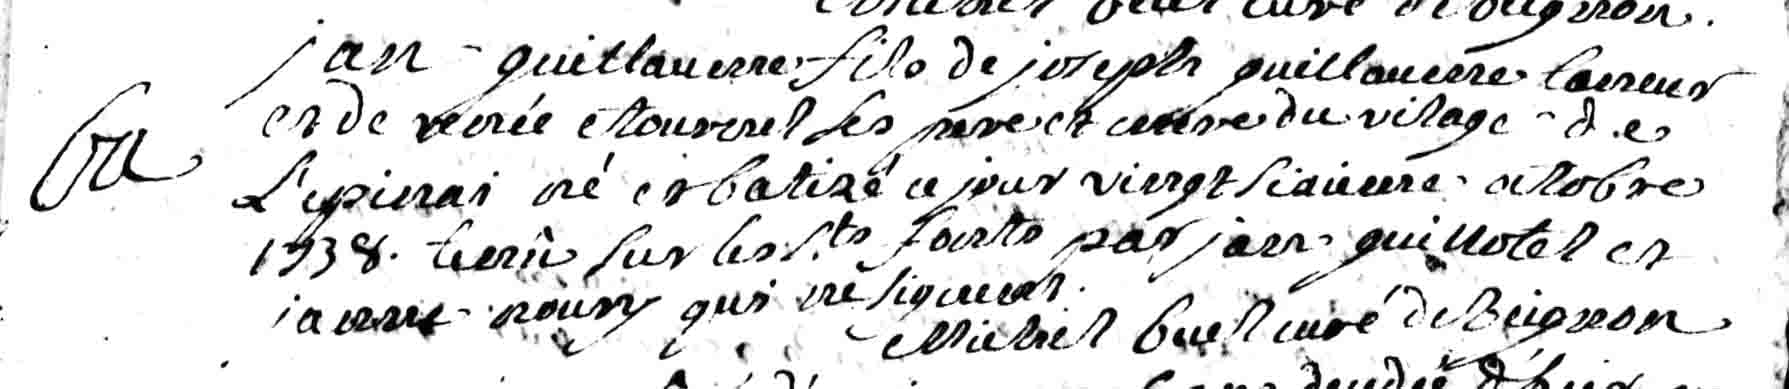 Michel buel curé de beignon.
jan guillaume fils de joseph guillaume laureur
et de renée etournel ses pere et mere du vilage de
ba
L'epinai né et batizé ce jour vingt sixieme octobre
1738. tenu sur les sts fonts par jan guillotel et
janne noury qui ne signent.
Michel buel curé de beignon